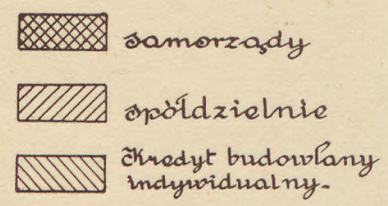 samorządy
spółdzielnie
Kredyt budowlany
indywidualny.